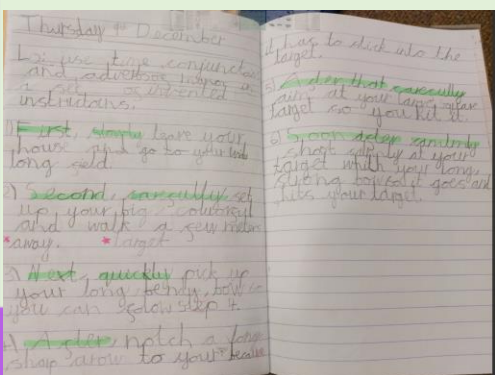 Thursday December
L.O: use time conjunctions
and adverbs
a set
instructions.
1) First, slowly leave your
house and go to your
long field.
2) Second, carefully set
up your big colourful
and walk a few metres
*away. *target
3) Next, quickly pick up
your long bendy bow so
you can follow step 4.
4) After, notch a long
sharp arrow to your because
it has to stick into the
target.
5) After that carefully
aim at your large
target so you hit it.
6) Soon after
shoot at your
target with your long
string goes and
hits your target.